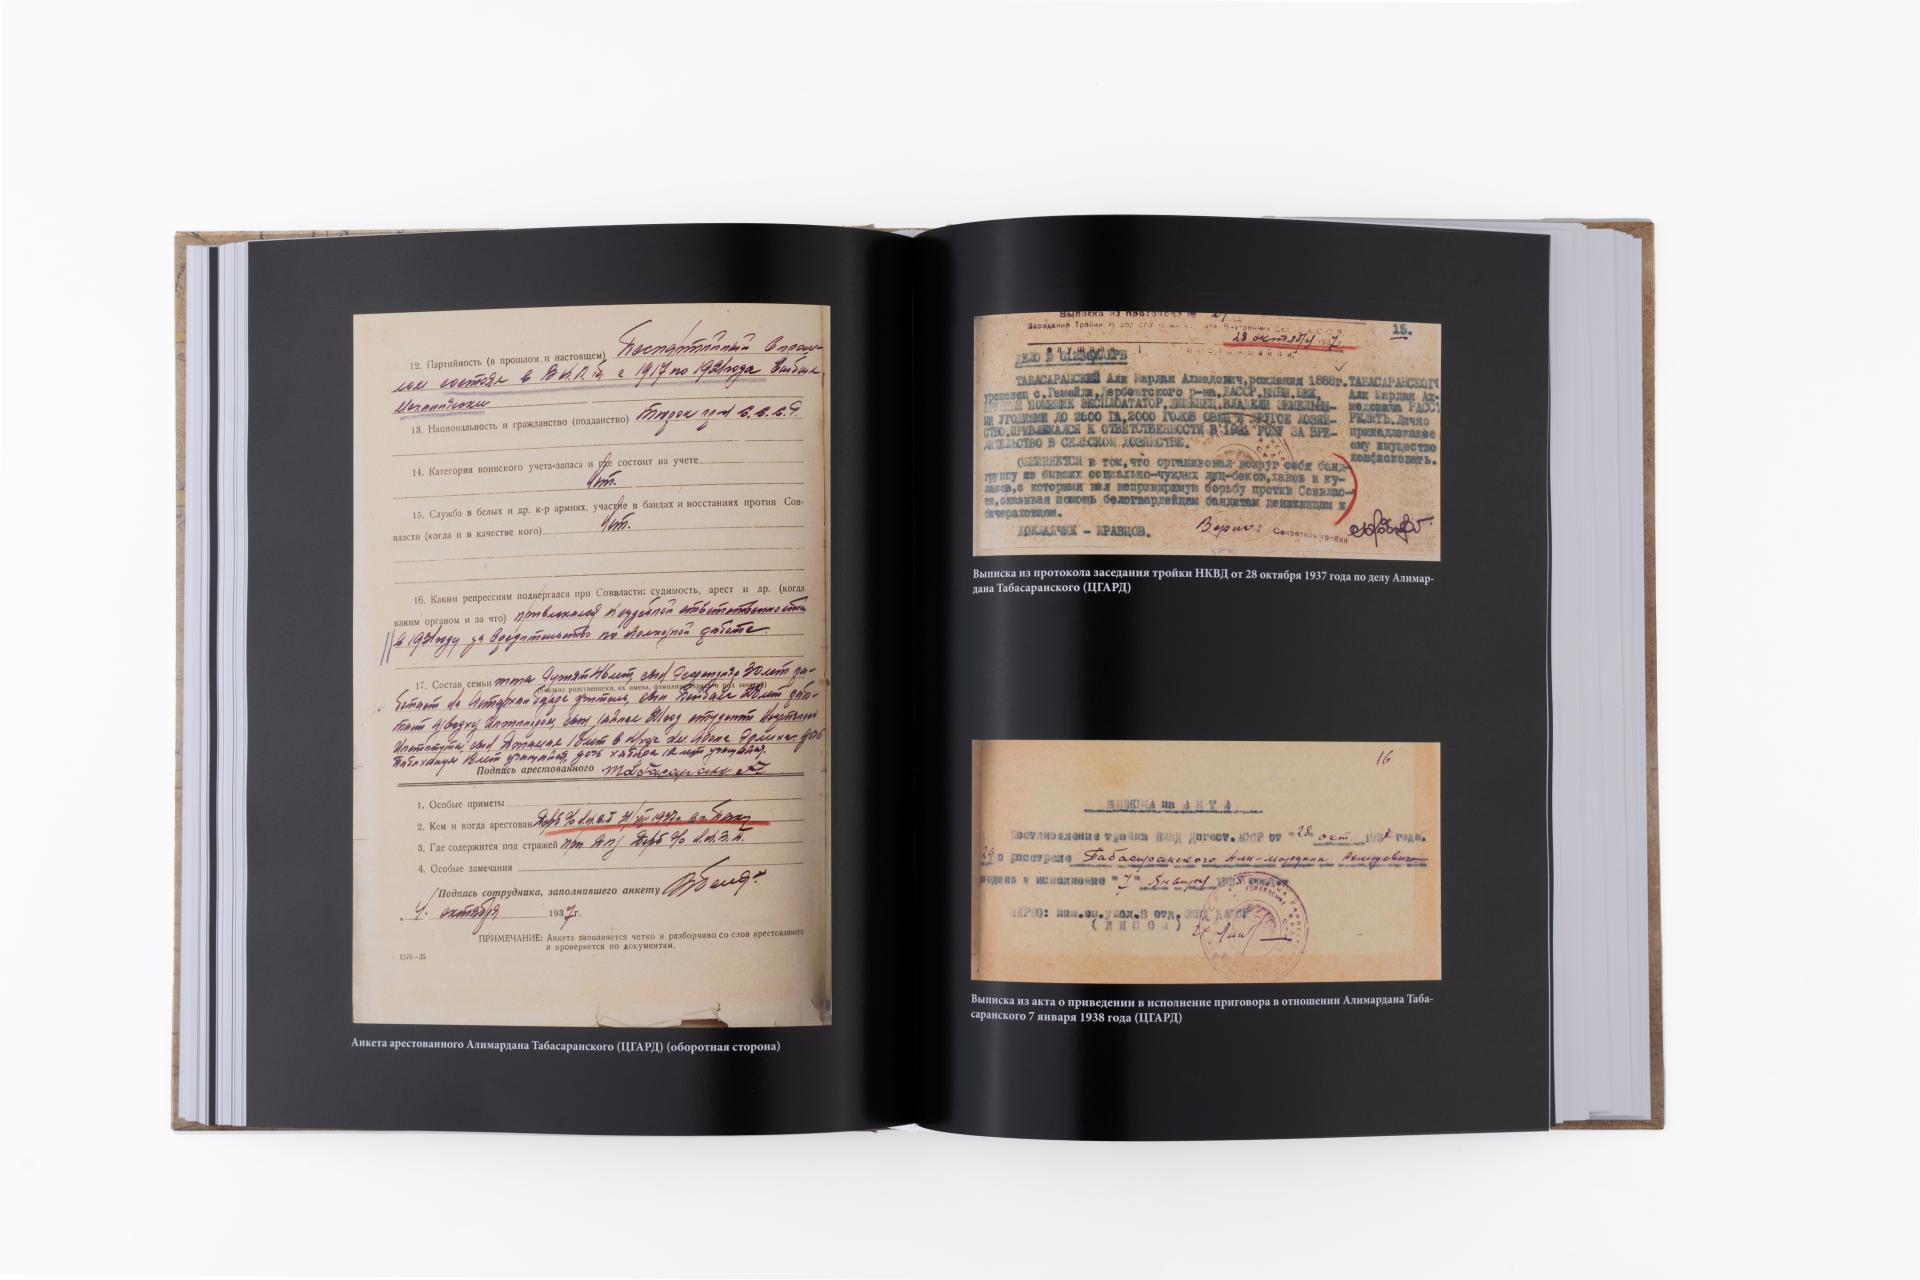 12. Партийность (в прошлом и настоящем) Беспартийный в прош-
лом состоял в В.К.П.б. с 1917 по 1921 года выбыл
Механически
13. Национальность и гражданство (подданство) гр-н С.С.С.Р.
14. Категория воинского учета-запаса и где состоит на учете
Нет.
15. Служба в белых и др. к-р армиях, участие в бандах и восстаниях против Сов-
власти (когда и в качестве кого) Нет.
16. Каким репрессиям подвергался при Соввласти: судимость, арест и др. (когда
каким органом и за что) привлекался к судебной ответственности
в 1931 году за вредительство по колхозной работе.
17. Состав семьи жена лет, сын 30 лет ра-
(указать родственников, их имена, фамилии
ботает учитель, сын 28 лет рабо-
тает инженером, сын студент
института, сын 18 лет дочь
лет учащаяся, дочь 12 лет учащаяся.
Подпись арестованного
1. Особые приметы
2. Кем и когда арестован 1937 г.
3. Где содержится под стражей при
4. Особые замечания
Подпись сотрудника, заполнившего анкету
4. октября 1937 г.
ПРИМЕЧАНИЕ: Анкета заполняется четко и разборчиво со слов арестованного
и проверяется по документам.
1576—35
Анкета арестованного Алимардана Табасаранского (ЦГАРД) (оборотная сторона)
Выписка из протокола №
Заседания Тройки Внутренних Дел
28 октября 1937 г.
15.
ДЕЛО
ТАБАСАРАНСКИЙ Али Мардан Ахмедович, рождения 1888г.
уроженец с.Гемейди, Дербентского р-на, ДАССР, БЫВ. БЕК,
КРУПНЫЙ ПОМЕЩИК ЭКСПЛОАТАТОР, ЛИШЕНЕЦ, ВЛАДЕЛ ЗЕМЕЛЬНЫ-
МИ УГОДИЯМИ ДО 2500 ГА, 2000 ГОЛОВ ОВЕЦ И ДРУГОЕ ХОЗЯЙ-
СТВО. ПРИВЛЕКАЛСЯ К ОТВЕТСТВЕННОСТИ В 1931 ГОДУ ЗА ВРЕ-
ДИТЕЛЬСТВО В СЕЛЬСКОМ ХОЗЯЙСТВЕ.
ОБВИНЯЕТСЯ в том, что организовал вокруг себя банд-
группу из бывших социально-чуждых лиц-беков, ханов и ку-
лаков, с которыми вел непримиримую борьбу против Соввлас-
ти, оказывая помощь белогвардейцам бандитам деникинцам и
бичераховцам.
ДОКЛАДЧИК - КРАВЦОВ.
ТАБАСАРАНСКОГО
Али Мардан Ах-
медовича РАССТ
РЕЛЯТЬ. Лично
принадлежащее
ему имущество
конфисковать.
Верно: Секретарь тройки
Выписка из протокола заседания тройки НКВД от 28 октября 1937 года по делу Алимар-
дана Табасаранского (ЦГАРД)
16
ВЫПИСКА из АКТА
Постановление тройки НКВД Дагест.АССР от "28" окт. 1937 года.
о расстреле Табасаранского Али-Мардана Ахмедовича
приведено в исполнение "7" января 1938
ВЕРНО: пом.оп.упол.8 отд. НКВД ДАССР
(ЛИСОВ)
Выписка из акта о приведении в исполнение приговора в отношении Алимардана Таба-
саранского 7 января 1938 года (ЦГАРД)